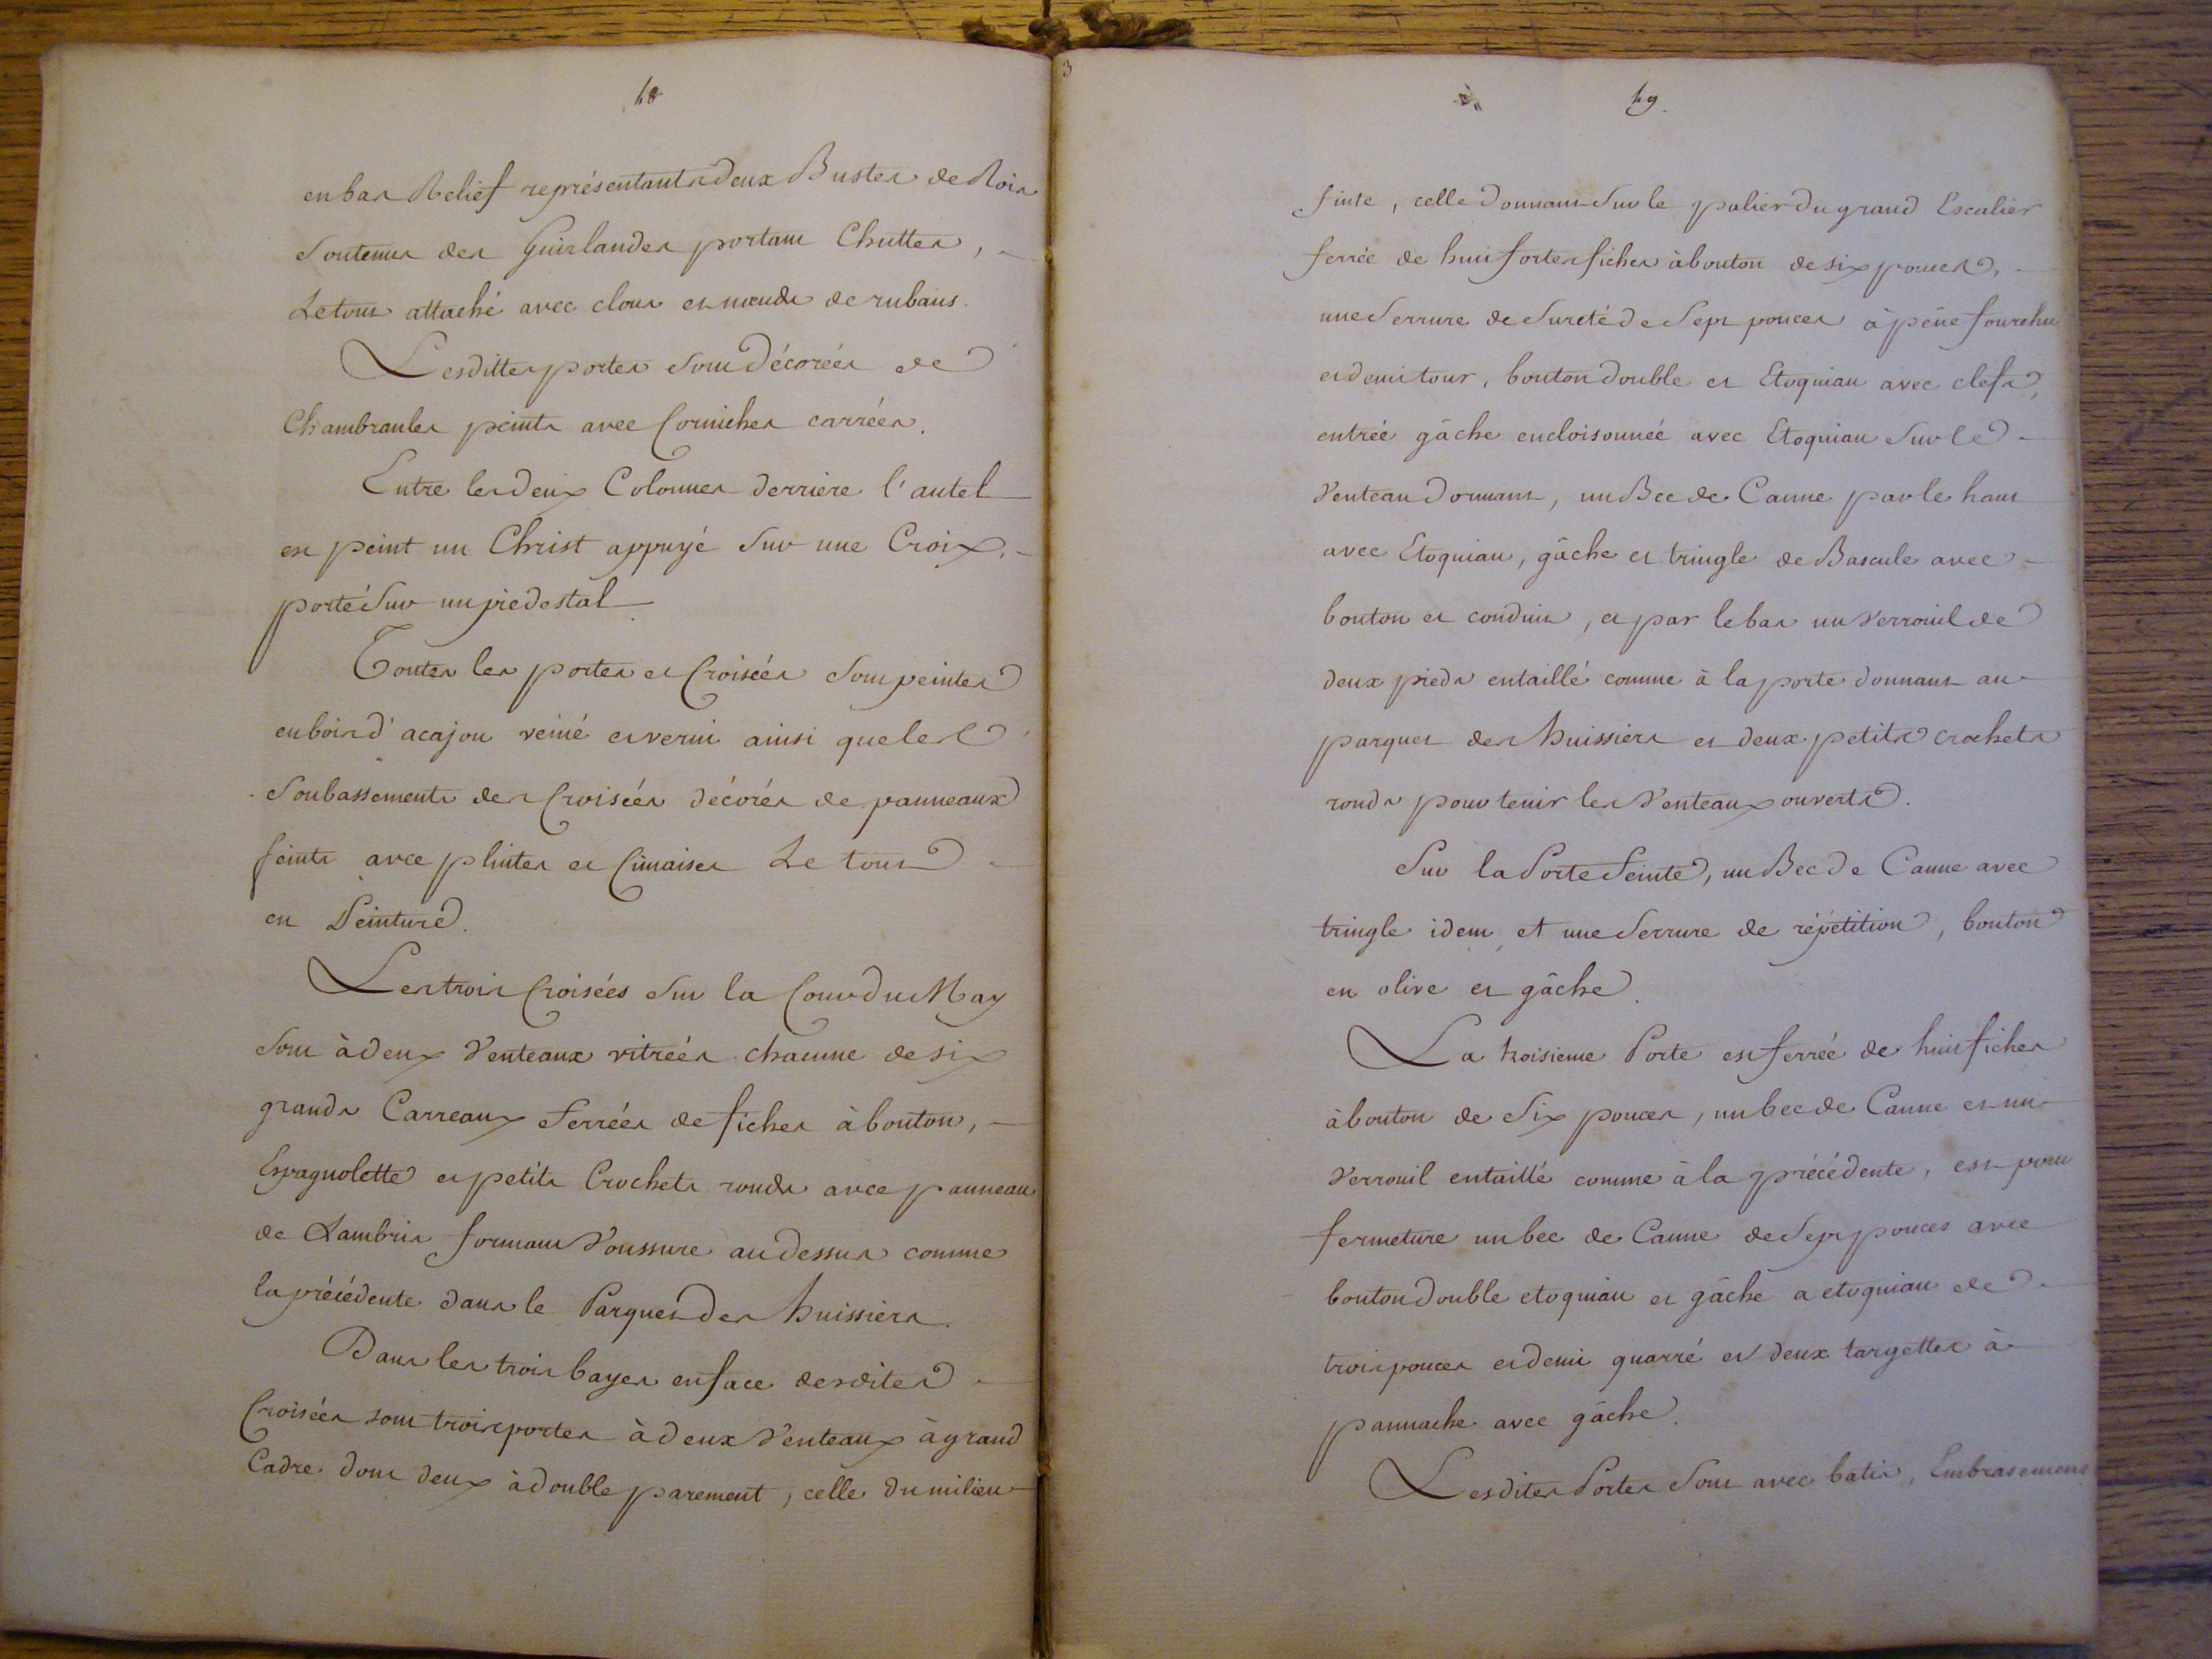 48
en bas Relief représentants deux Bustes de Rois
Soutenus des Guirlandes portant Chuttes,
Le tout attaché avec clous et nœuds de rubans.
Lesdittes portes sont décorées de
Chambranles peints avec Corniches carrées.
Entre les deux Colonnes derriere l'autel
est peint un Christ appuyé sur une Croix,
porté sur un piedestal
Toutes les portes et Croisées sont peintes
en bois d'acajou veiné et verni ainsi que les
Soubassements des Croisées décorés de panneaux
feints avec plintes et Cimaises Le tout
en Peinture.
Les trois Croisées sur la Cour du May
sont à deux Venteaux vitrées chacune de six
grands Carreaux ferrées de fiches à bouton,
Espagnolette et petits Crochets ronds avec panneau
de Lambris formant Voussure au dessus comme
la précédente dans le Parquet des huissiers.
Dans les trois bayes en face desdites
Croisées sont trois portes à deux Venteaux à grand
Cadre dont deux à double parement, celle du milieu
3
49.
finte, celle donnant sur le palier du grand Escalier
ferrée de huit fortes fiches à bouton de six pouces,
une Serrure de Sureté de Sept pouces à pêne fourchu
et demi tour, bouton double et Etoquiau avec clefs,
entrée gâche encloisonnée avec Etoquiau sur le
Venteau dormant, un Bec de Canne par le haut
avec Etoquiau, gâche et tringle de Bascule avec
bouton et conduit, et par le bas un Verrouil de
deux pieds entaillé comme à la porte donnant au
parquet des huissiers et deux petits crochets
ronds pour tenir les Venteaux ouverts.
Sur la Porte Feinte, un Bec de Canne avec
tringle idem, et une Serrure de répétition, bouton
en olive et gâche.
La troisieme Porte est ferrée de huit fiches
à bouton de Six pouces, un bec de Canne et un
Verrouil entaillé comme à la précédente, est pour
fermeture un bec de Canne de Sept pouces avec
bouton double etoquiau et gâche a etoquiau de
trois pouces et demi quarré et deux targettes à
pannache avec gâche.
Lesdites Portes Sont avec batis, Embrasemens